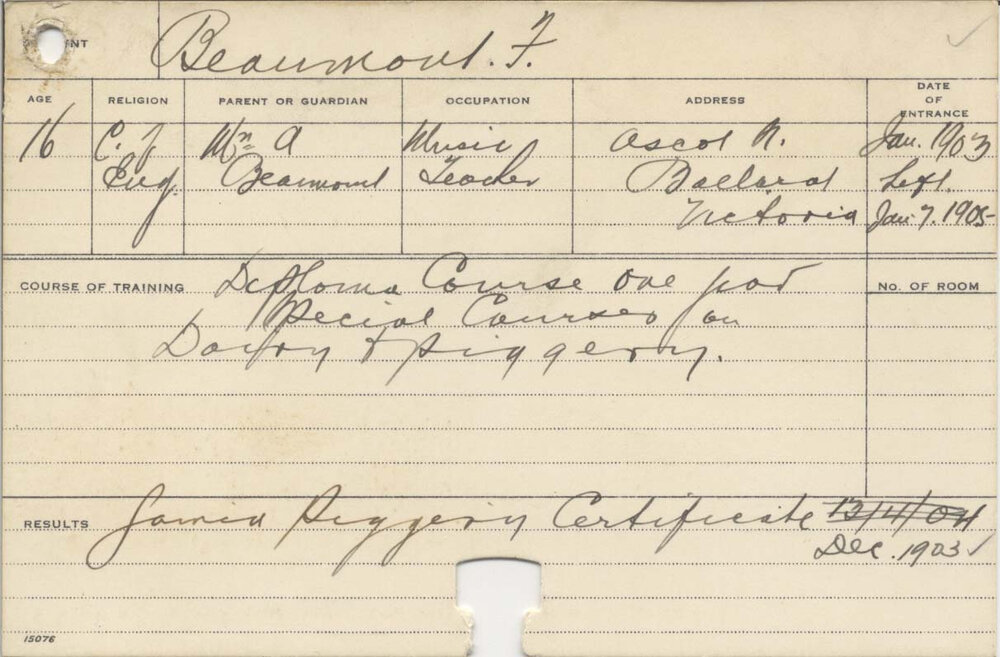 NT Beaumont. F.
AGE RELIGION PARENT OR GUARDIAN OCCUPATION ADDRESS DATE
OF
ENTRANCE
16 C. of Wm A Music Ascot N. Jan. 1903
Eng. Beaumont Teacher Ballarat Left.
Victoria Jan 7. 1905
COURSE OF TRAINING Diploma Course one year No. OF ROOM
Special Courses on
Dairy & Piggery.
RESULTS Gained Piggery Certificate 13/4/04
Dec. 1903 ✓
15076